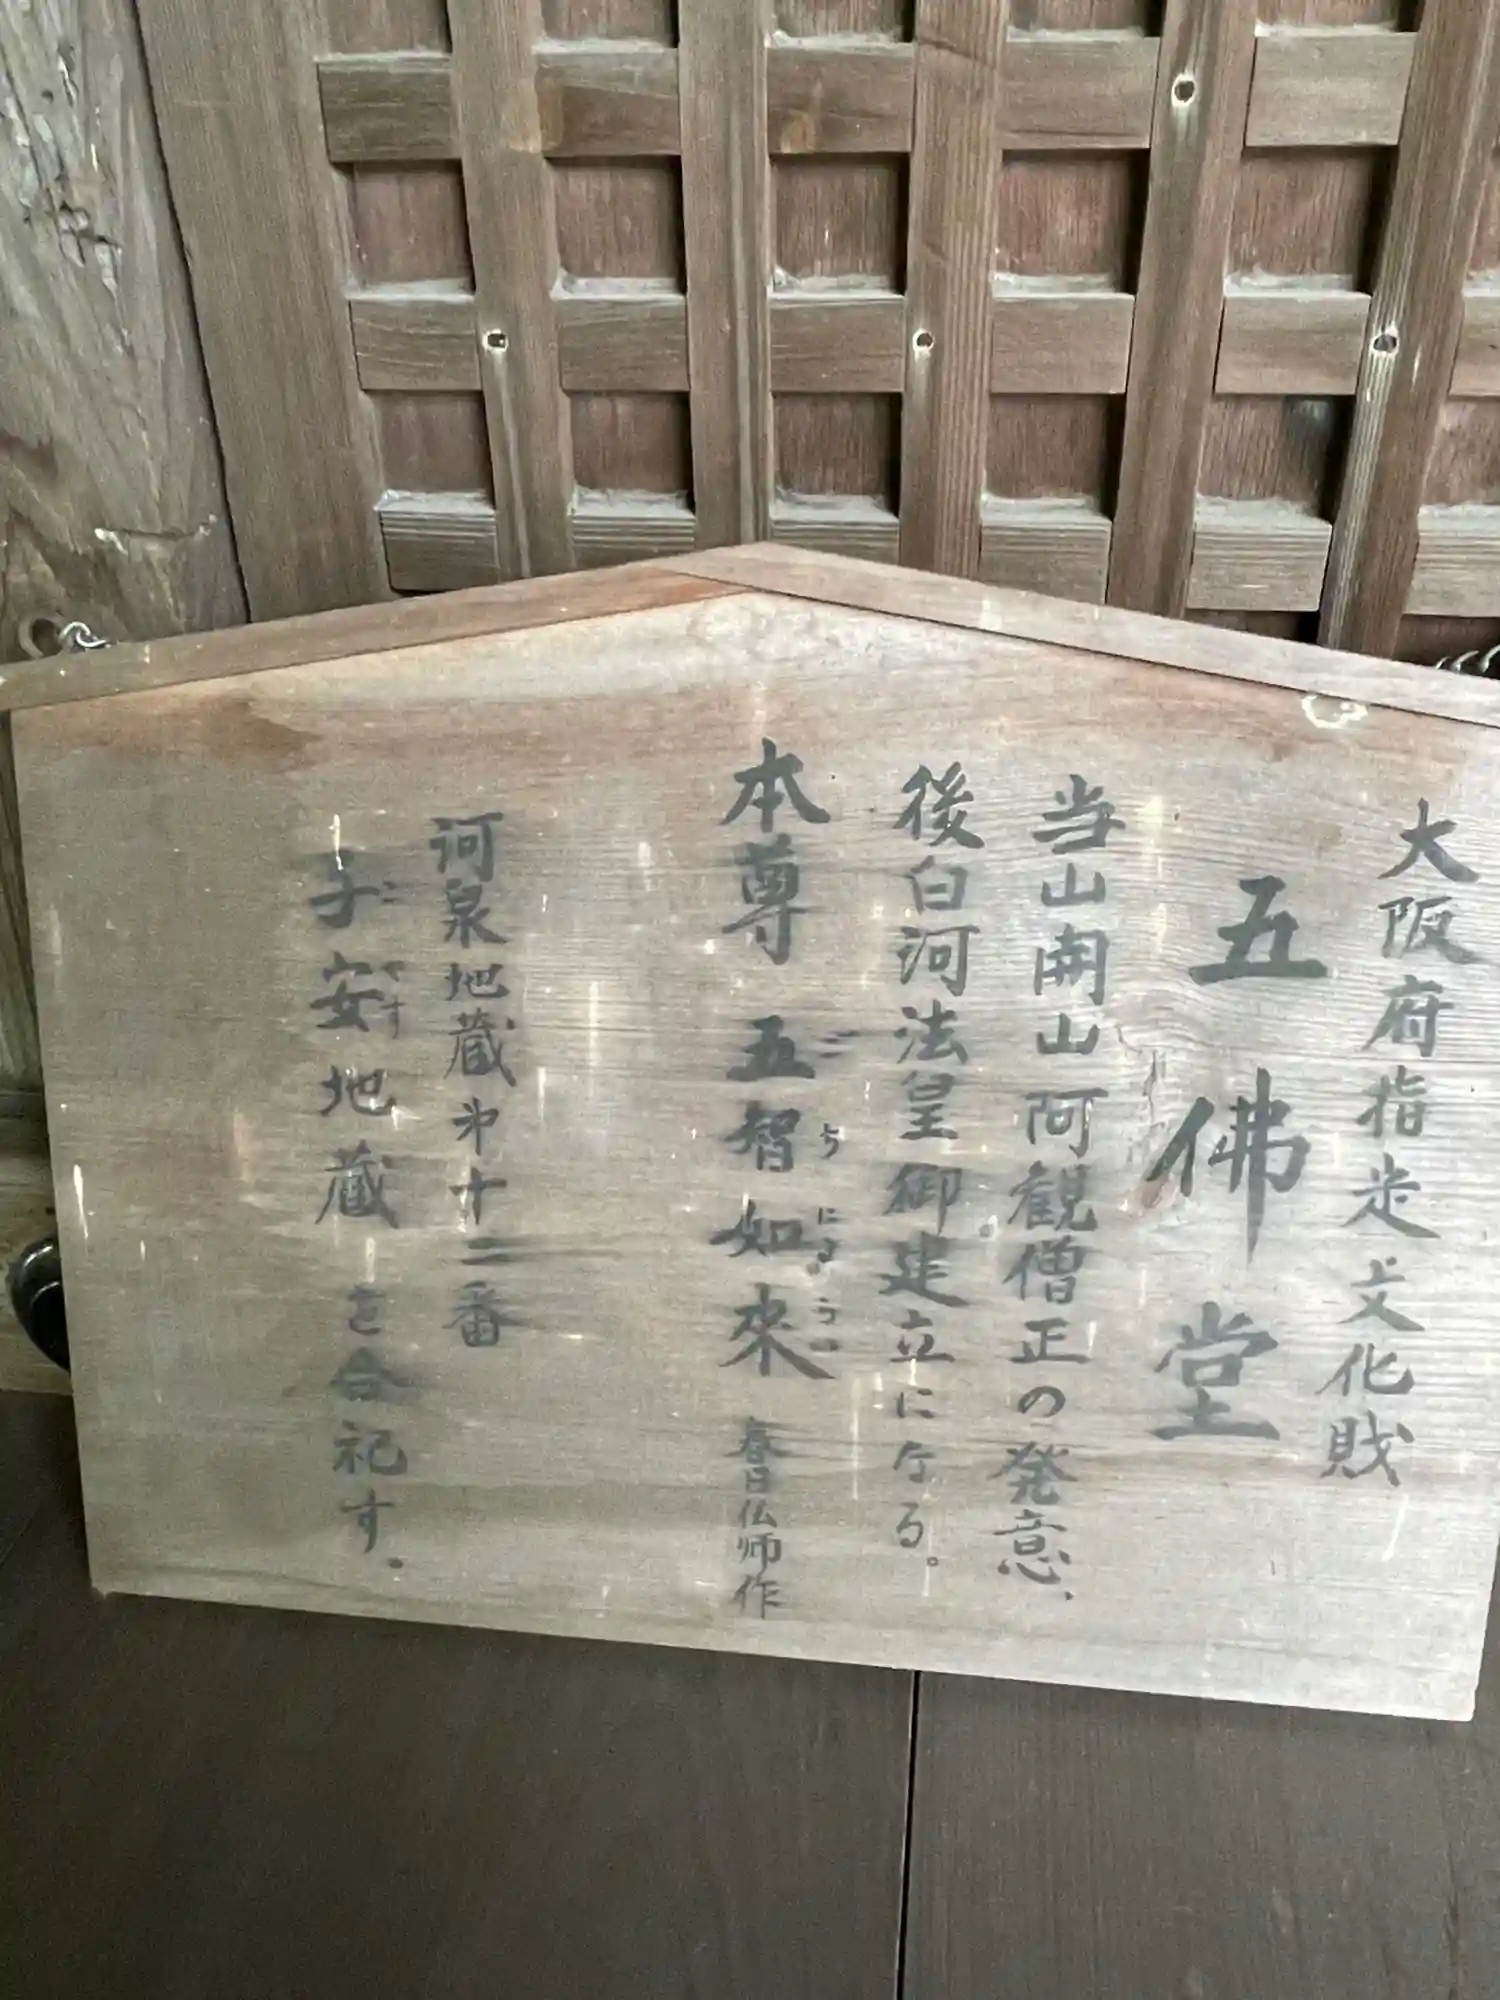 大阪府指定文化財
五佛堂
当山開山阿観僧正の発意、
後白河法皇御建立になる。
本尊 五智如来 春日仏師作
ごちにょらい
河泉地蔵第十二番
子安地蔵を合祀す。
こやす